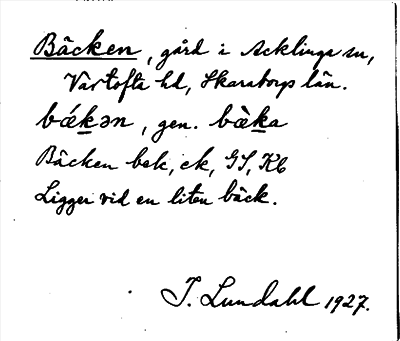 Bäcken, gård i Acklinga sn,
Vartofta hd, Skaraborgs län.
bǽkən, gen. bæ̀ka
Bäcken bek, ek, GS, Kb
Ligger vid en liten bäck.
I. Lundahl 1927.